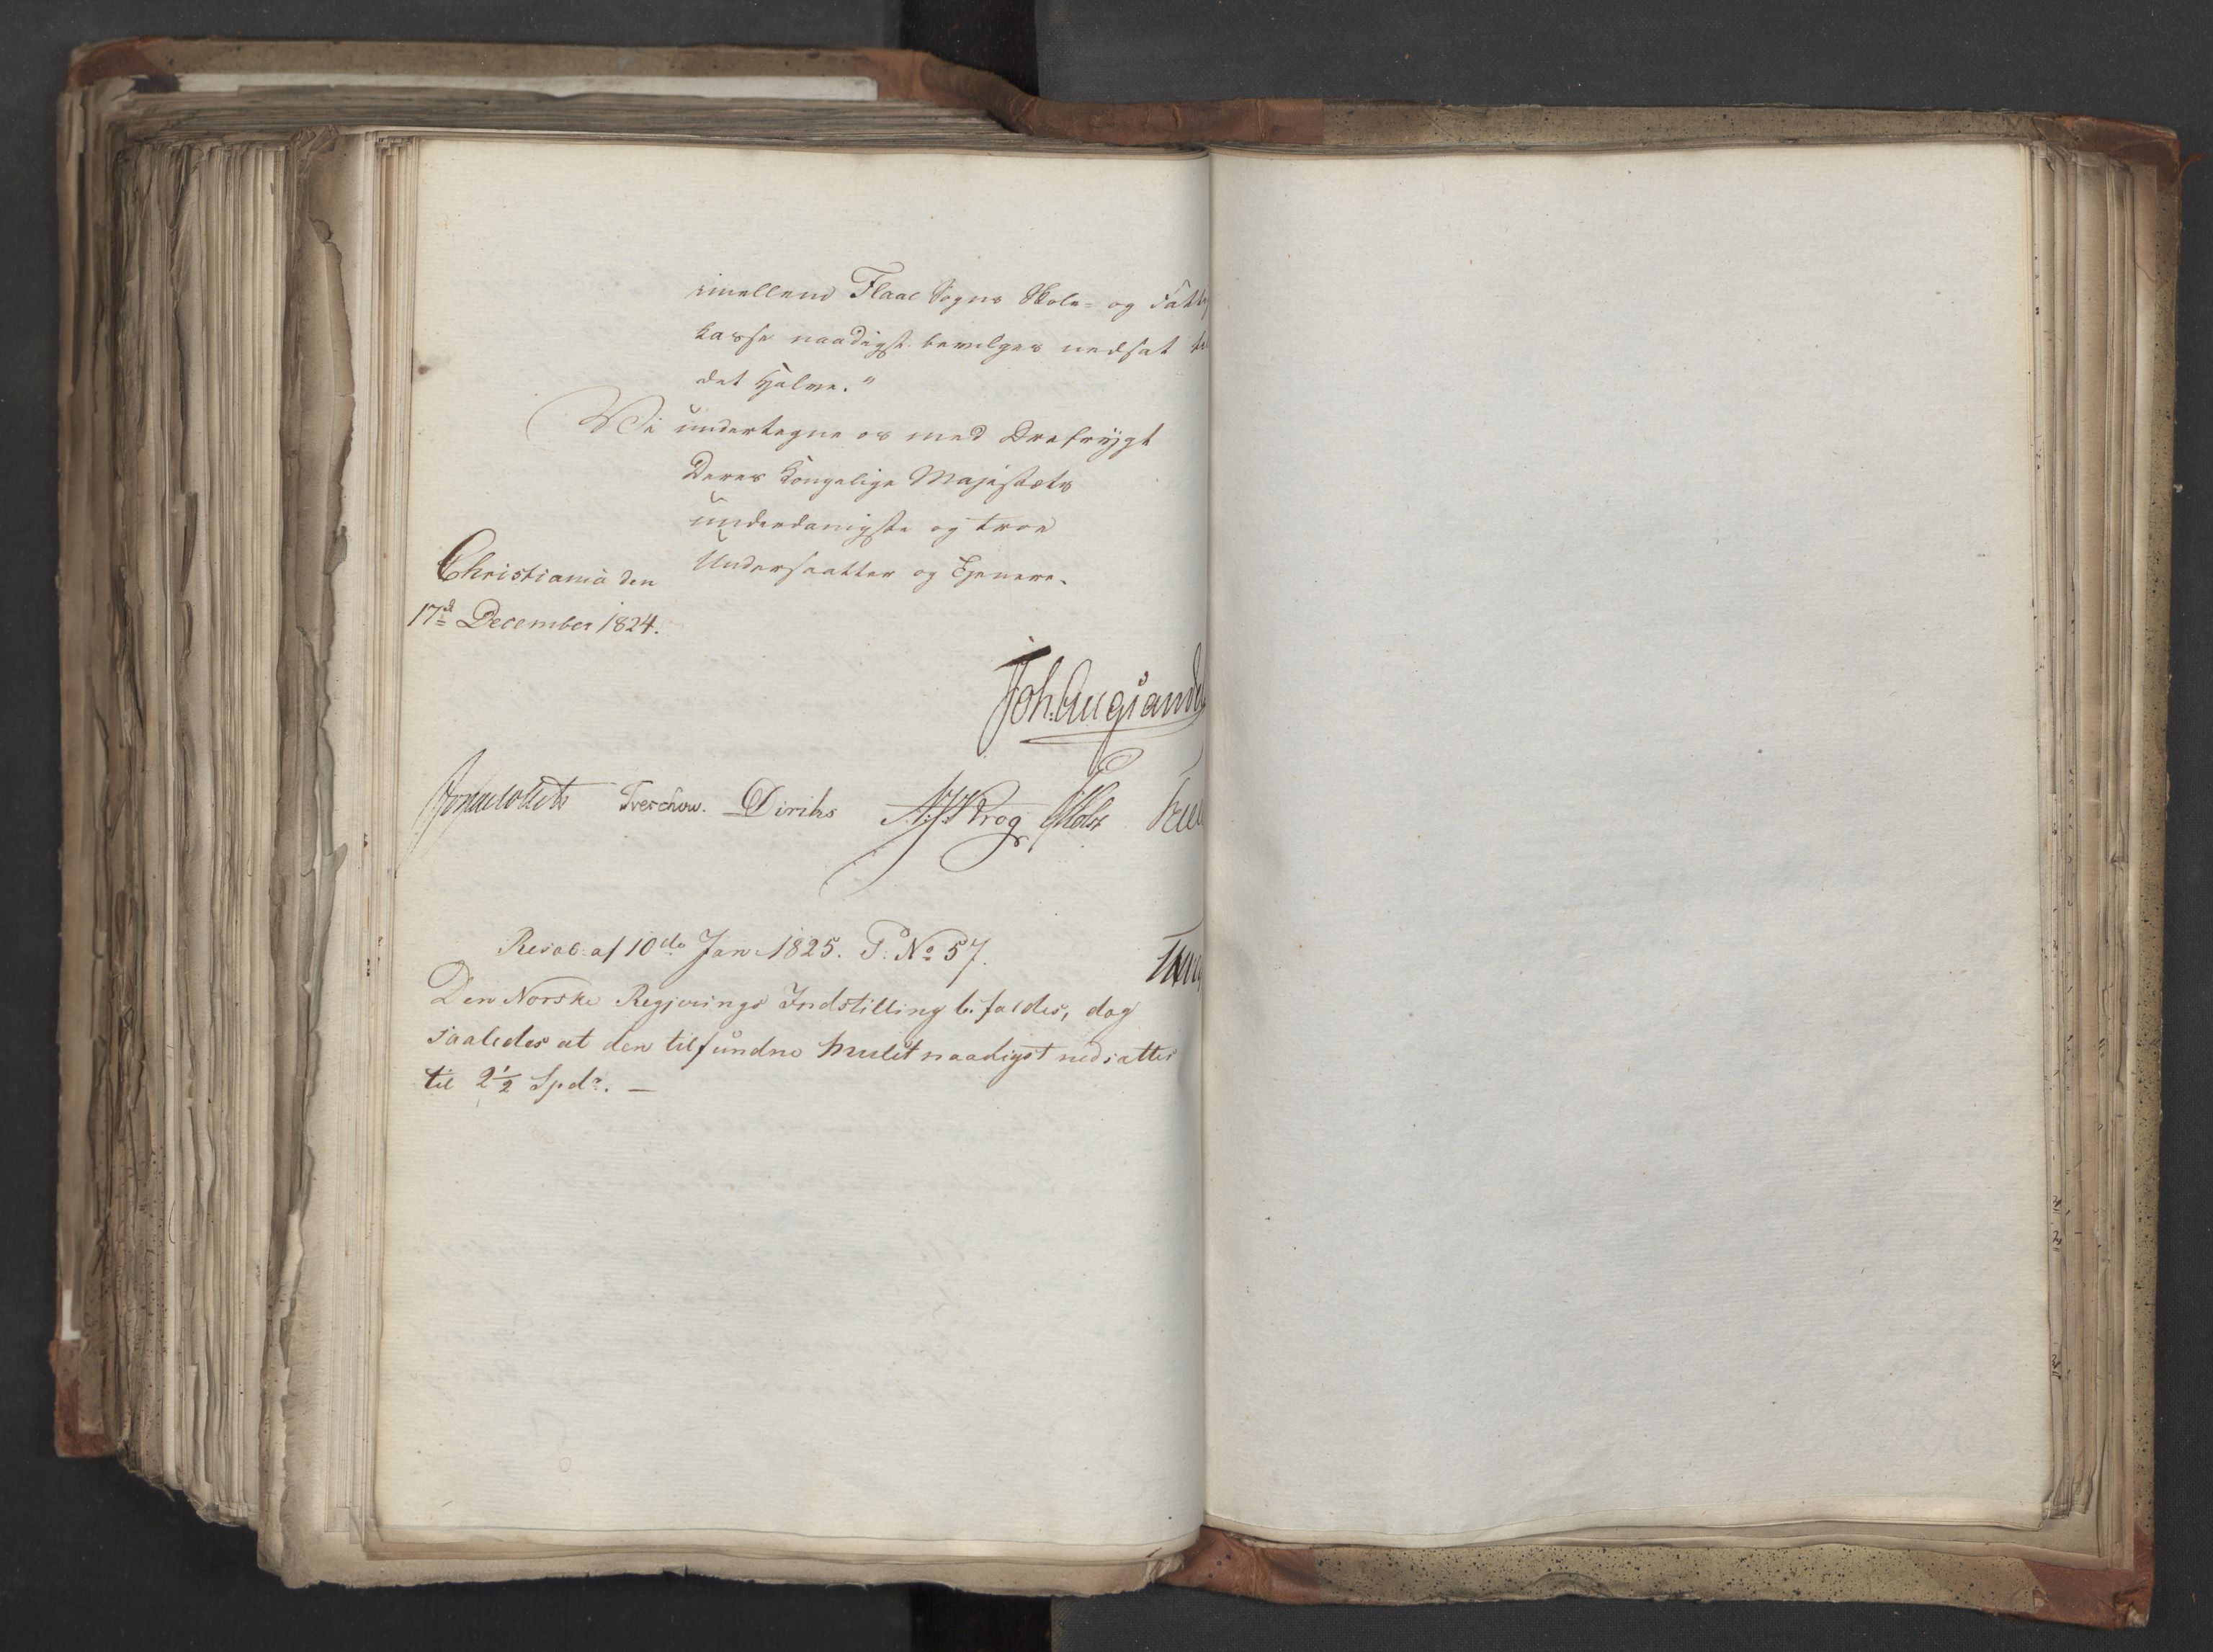 imellem Flaae Sogns Skole- og Fattig
kasse naadigst bevilges nedsat til
det Halve."
Vi undertegne os med Ærefrygt
Deres Kongelige Majestæts
underdanigste og troe
Undersaatter og Tjenere.
Christiania den
17d December 1824.
Joh. Aug. Sande
Jonas Collett Treschow. Diriks A. J. Krog Holst
Resol: af 10de Jan. 1825. P. No 57.
Den Norske Regjerings Indstilling bifaldes, dog
saaledes at den tilfundne Mulct naadigst nedsattes
til 2½ Spdr. —